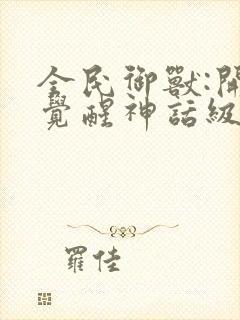 全民御獸:開
覺醒神話級
羅佳